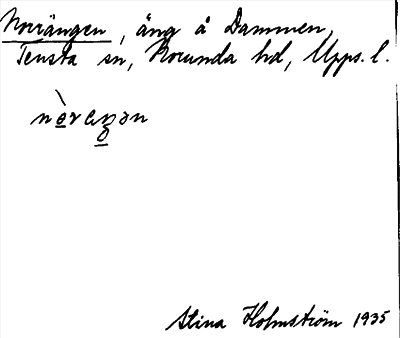 Norrängen, äng å Dammen,
Tensta sn, Norunda hd, Upps. l.
Stina Holmström 1935